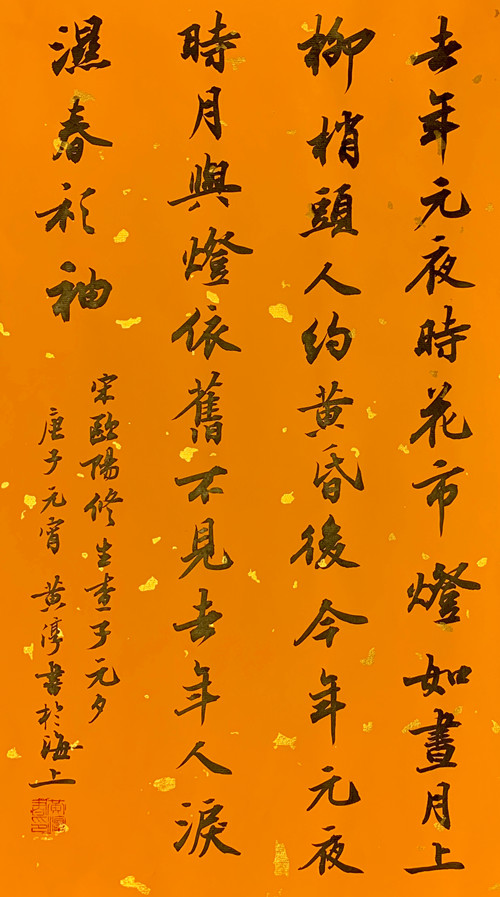 去年元夜時花市燈如晝月上
柳梢頭人約黄昏後今年元夜
時月與燈依舊不見去年人淚
濕春衫袖
宋歐陽修生查子元夕
庚子元宵黄淳書於海上